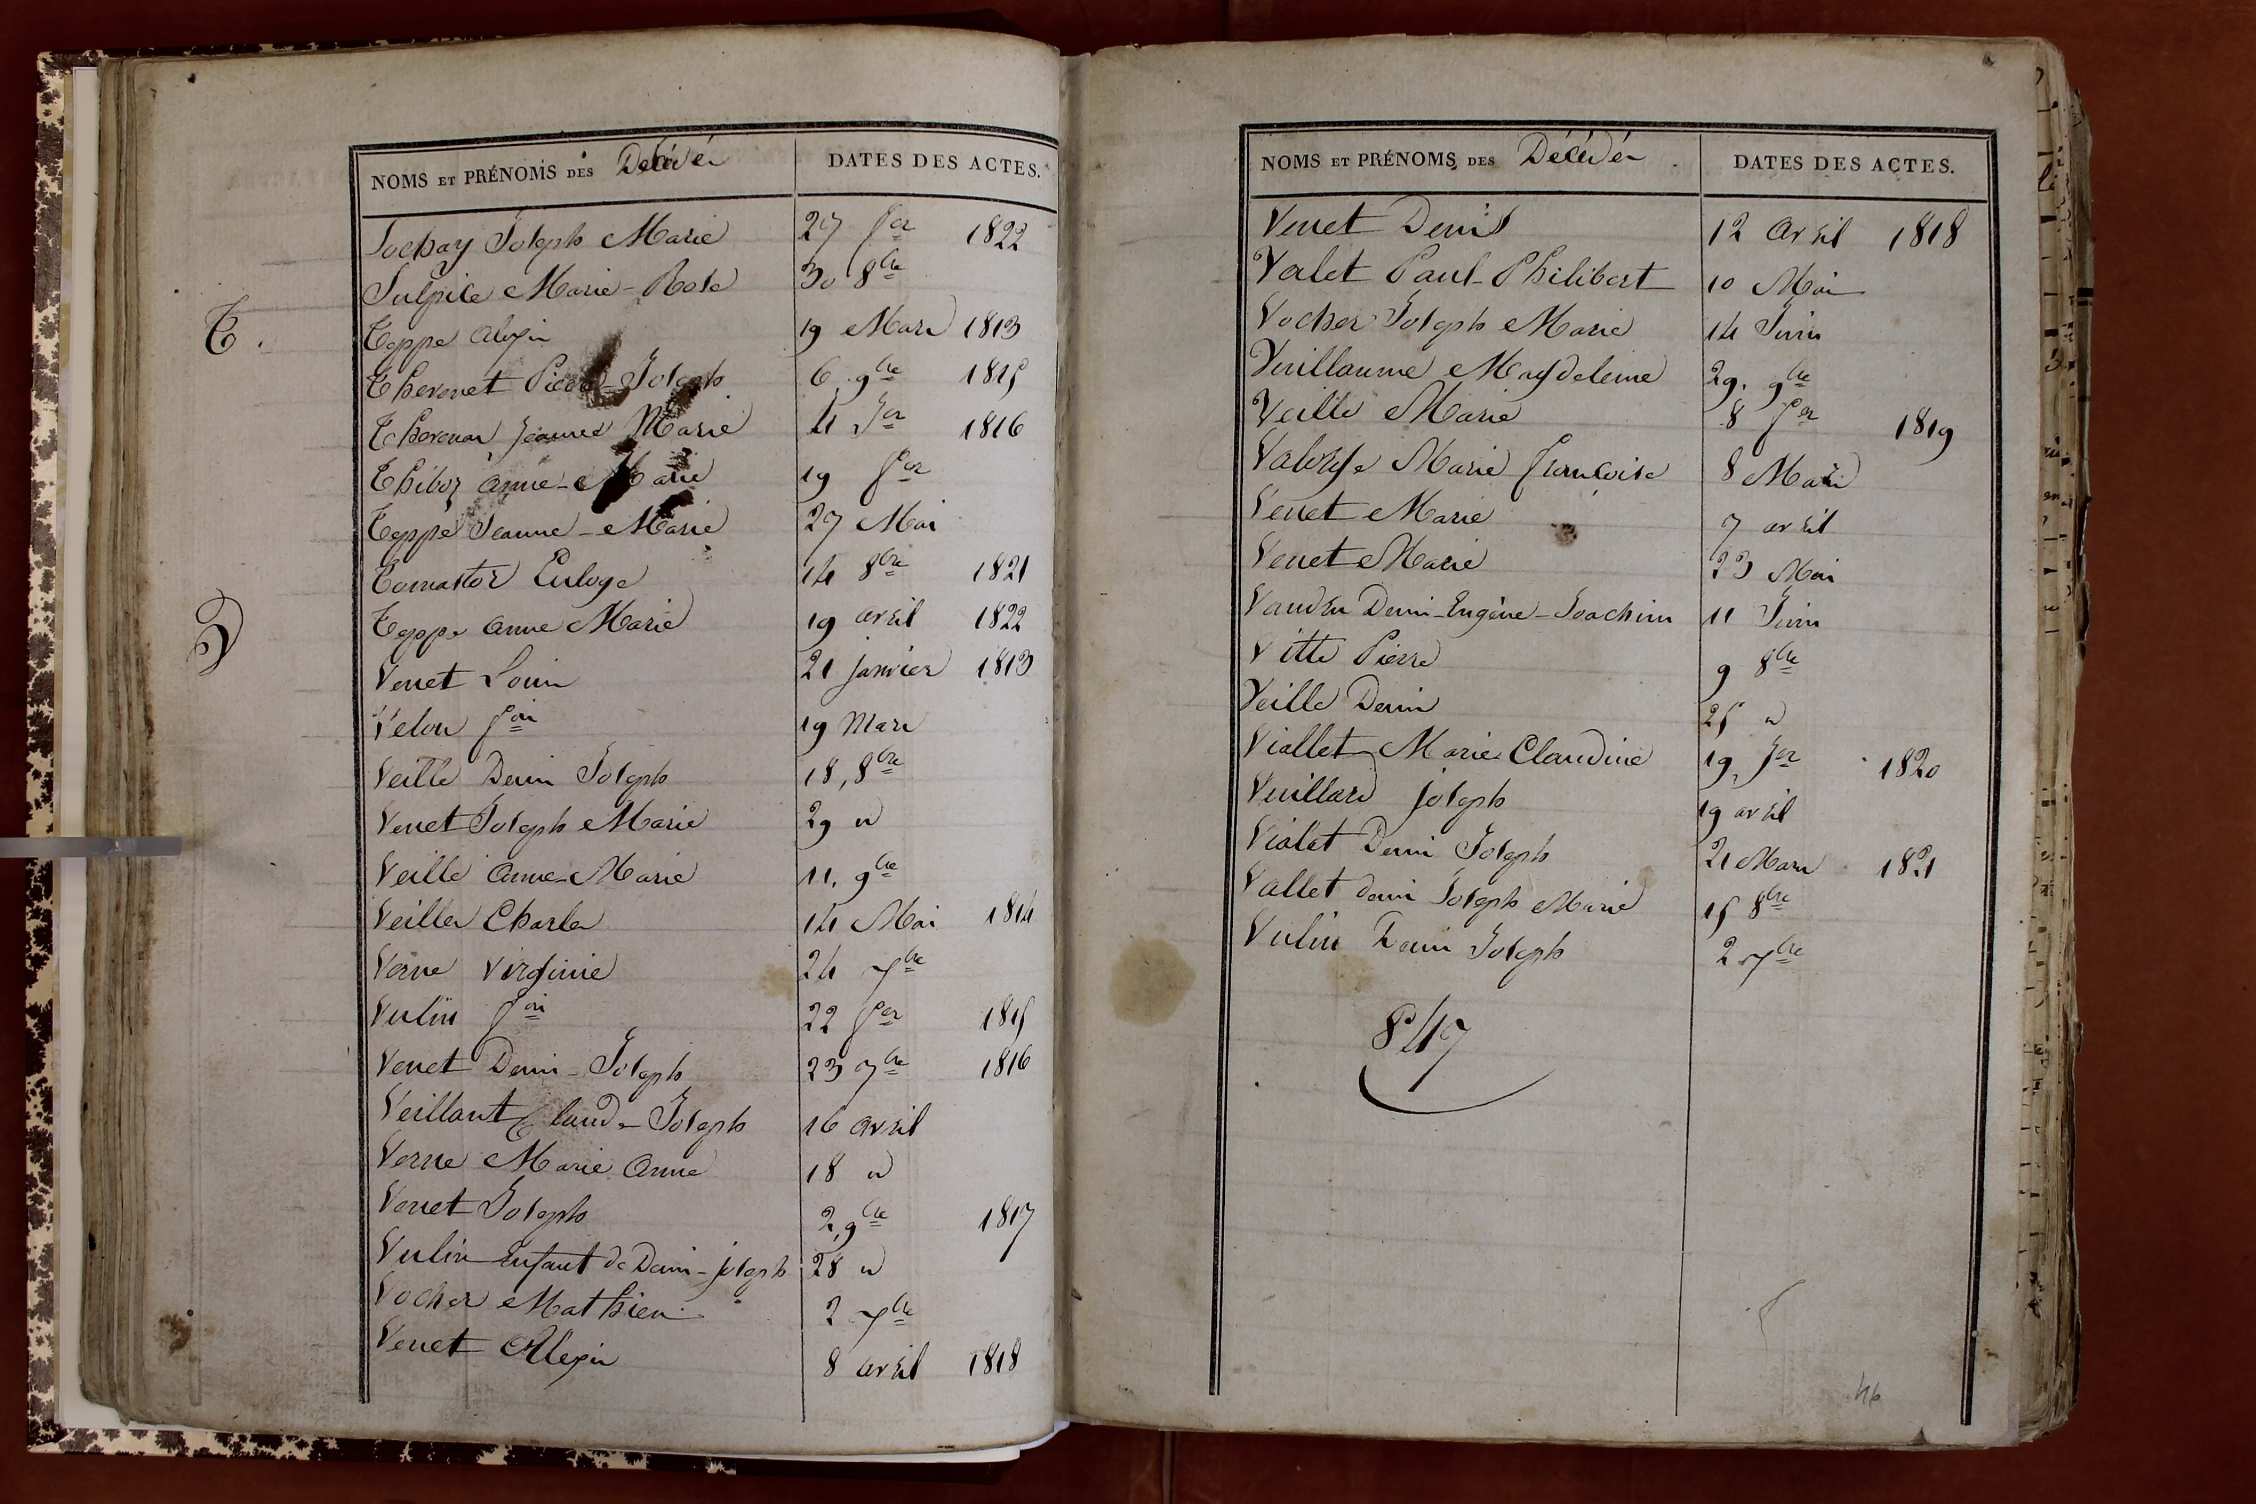 NOMS ET PRÉNOMS DES Décédés DATES DES ACTES.
Sochay Joseph Marie 27 fer 1822
Sulpice Marie-Rose 30 8bre
T.
Teppe alexis 19 Mars 1813
Thevenet Pierre-Joseph 6 9bre 1815
Thevenon Jeanne Marie 4 Jer 1816
Thiboz anne-Marie 19 fer
Teppe Jeanne-Marie 27 Mai
Tomastor Euloge 14 8bre 1821
Teppe anne Marie 19 avril 1822
V
Venet Louis 21 janvier 1813
Velon fois 19 Mars
Veille Denis Joseph 18, 8bre
Venet Joseph Marie 29 "
Veille anne-Marie 11, 9bre
Veille Charles 14 Mai 1814
Verne Virginie 24 xbre
Vulin fois 22 fer 1815
Venet Denis-Joseph 23 7bre 1816
Veillant Claude-Joseph 16 avril
Verne Marie Anne 18 "
Venet Joseph 2, 9bre 1817
Vulin Enfant de Denis-joseph 28 "
Vocher Mathieu 2 xbre
Venet Alexis 8 avril 1818
NOMS ET PRÉNOMS DES Décédés DATES DES ACTES.
Venet Denis 12 avril 1818
Valet Paul-Philibert 10 Mai
Vocher Joseph Marie 14 Juin
Vuillaume Magdeleine 29, 9bre
Veille Marie 8 fer 1819
Marie françoise 8 Mars
Venet Marie 7 avril
Venet Marie 23 Mai
Denis-Eugène-Joachim 11 Juin
Vitte Pierre 9 8bre
Veille Denis 25 "
Viallet Marie Claudine 19, Jer 1820
Vuillard joseph 19 avril
Violet Denis Joseph 21 Mars 1821
Vallet denis Joseph Marie 15 8bre
Vulin Denis Joseph 2 xbre
847
46